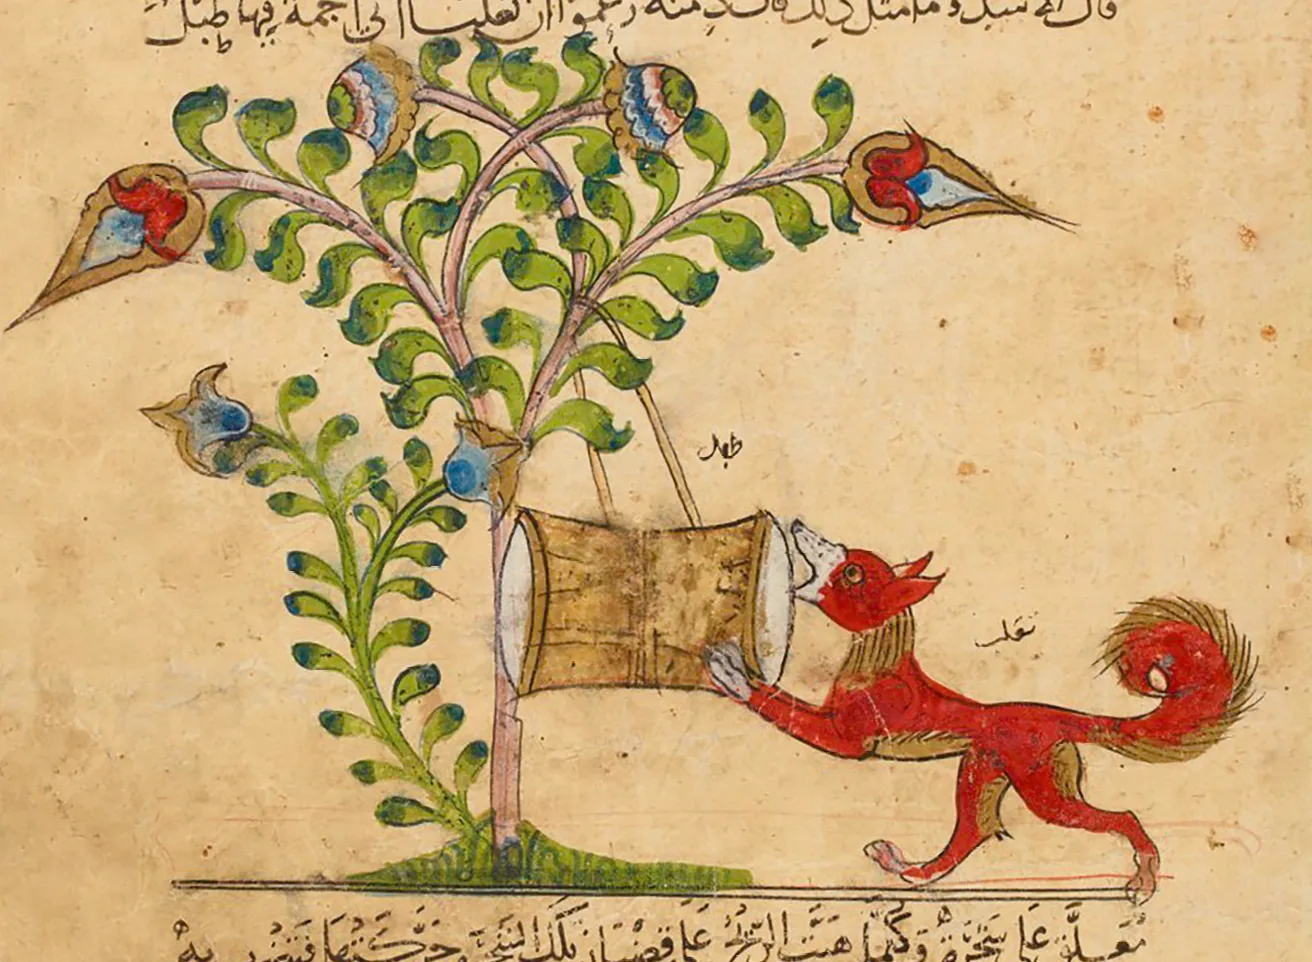 قال الاسد وما مثل ذلك قال دمنة زعموا ان ثعلبا اتى اجمة فيها طبل
طبل
ثعلب
معلّق على شجرة وكلما هبّت الريح على قضبان تلك الشجرة حركتها فتضرب